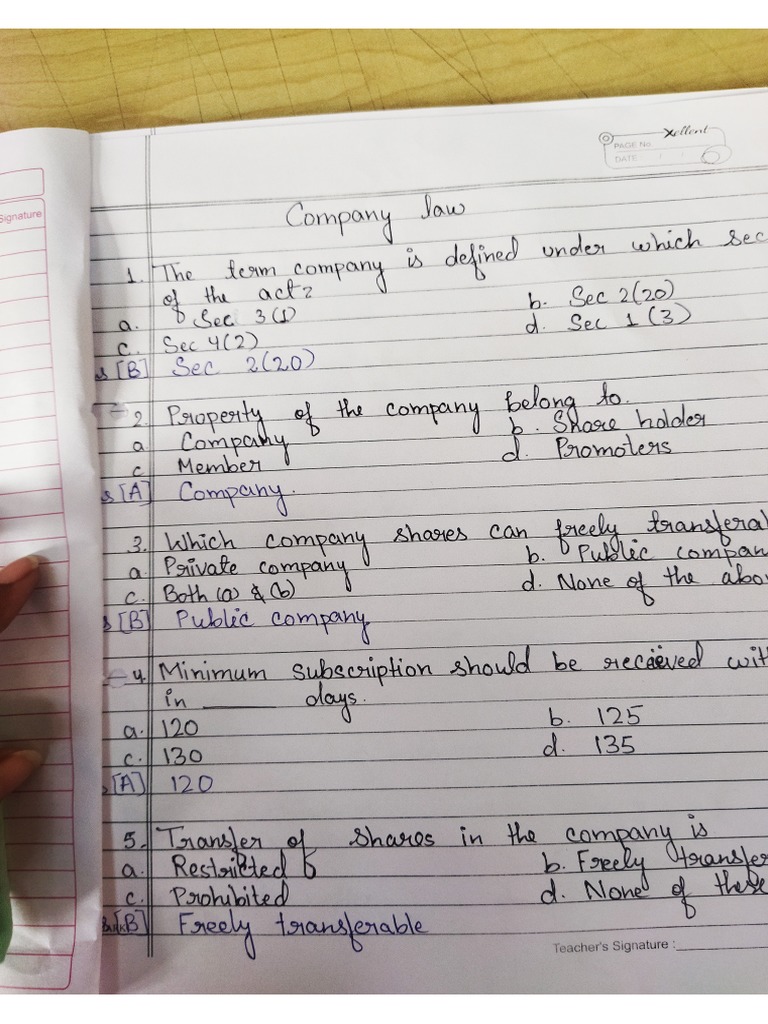 Signature
Xellent
PAGE No.
DATE
Company law
1. The term company is defined under which sec
of the act?
a. Sec 3(1) b. Sec 2(20)
c. Sec 4(2) d. Sec 1(3)
s [B] Sec 2(20)
2. Property of the company belong to.
a Company b. Share holder
c. Member d. Promoters
s [A] Company.
3. Which company shares can freely transferal
a. Private company b. Public compan
c. Both (a) & (b) d. None of the abo
s [B] Public company
4. Minimum subscription should be received wit
in ______ days.
a. 120 b. 125
c. 130 d. 135
[A] 120
5. Transfer of shares in the company is
a. Restricted b. Freely transfer
c. Prohibited d. None of these
[B] Freely transferable
Teacher's Signature :